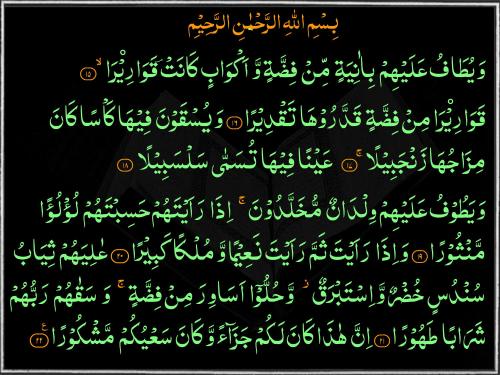 بِسْمِ اللهِ الرَّحْمٰنِ الرَّحِيْمِ
وَيُطَافُ عَلَيْهِمْ بِاٰنِيَةٍ مِّنْ فِضَّةٍ وَّاَكْوَابٍ كَانَتْ قَوَارِيْرَا۠ ۙ‏ ﴿۱۵﴾
قَوَارِيْرَا۟ مِنْ فِضَّةٍ قَدَّرُوْهَا تَقْدِيْرًا ﴿۱۶﴾ وَيُسْقَوْنَ فِيْهَا كَاْسًا كَانَ
مِزَاجُهَا زَنْجَبِيْلًا ۚ ﴿۱۷﴾ عَيْنًا فِيْهَا تُسَمّٰى سَلْسَبِيْلًا ﴿۱۸﴾
وَيَطُوْفُ عَلَيْهِمْ وِلْدَانٌ مُّخَلَّدُوْنَ ۚ اِذَا رَاَيْتَهُمْ حَسِبْتَهُمْ لُؤْلُؤًا
مَّنْثُوْرًا ﴿۱۹﴾ وَاِذَا رَاَيْتَ ثَمَّ رَاَيْتَ نَعِيْمًا وَّمُلْكًا كَبِيْرًا ﴿۲۰﴾ عٰلِيَهُمْ ثِيَابُ
سُنْدُسٍ خُضْرٌ وَّاِسْتَبْرَقٌ ۡ وَّحُلُّوْۤا اَسَاوِرَ مِنْ فِضَّةٍ ۚ وَسَقٰهُمْ رَبُّهُمْ
شَرَابًا طَهُوْرًا ﴿۲۱﴾ اِنَّ هٰذَا كَانَ لَكُمْ جَزَآءً وَّكَانَ سَعْيُكُمْ مَّشْكُوْرًا ﴿۲۲﴾